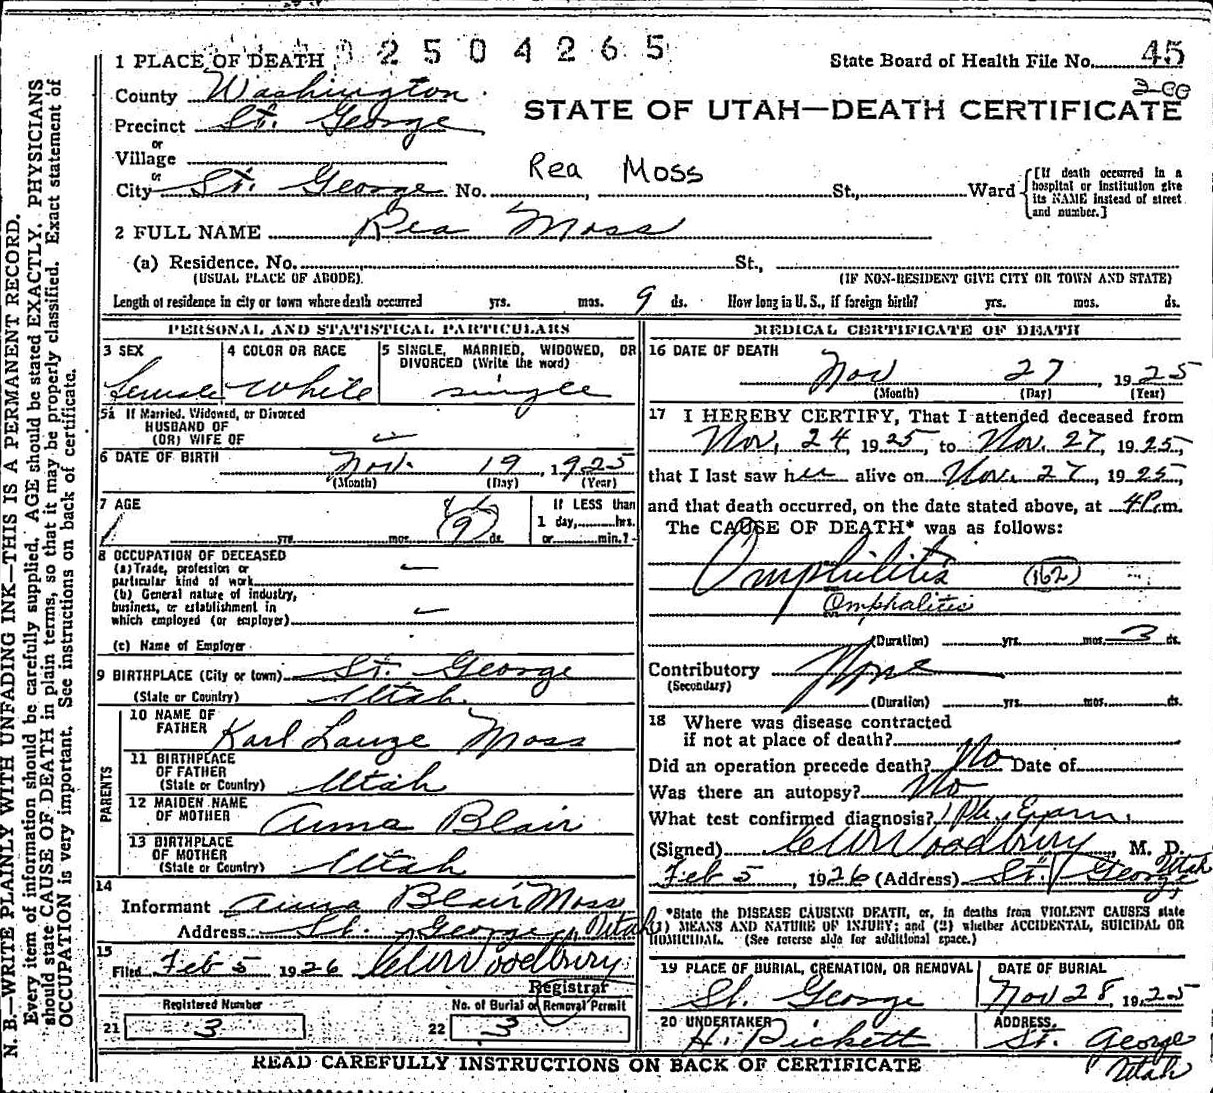 2504265
State Board of Health File No. 45
1 PLACE OF DEATH
County Washington
200
STATE OF UTAH—DEATH CERTIFICATE
Precinct St. George
or
Village
or
Rea Moss
City St. George No. St., Ward
[If death occurred in a hospital or institution give its NAME instead of street and number.]
2 FULL NAME Rea Moss
(a) Residence. No. St.,
(USUAL PLACE OF ABODE) (IF NON-RESIDENT GIVE CITY OR TOWN AND STATE)
Length of residence in city or town where death occurred yrs. mos. 9 ds. How long in U. S., if foreign birth? yrs. mos. ds.
PERSONAL AND STATISTICAL PARTICULARS
3 SEX
Female
4 COLOR OR RACE
White
5 SINGLE, MARRIED, WIDOWED, OR
DIVORCED (Write the word)
single
5a If Married, Widowed, or Divorced
HUSBAND OF
(OR) WIFE OF —
6 DATE OF BIRTH Nov. 19, 1925
(Month) (Day) (Year)
7 AGE
yrs. mos. 9 ds.
If LESS than
1 day, hrs.
or min.?
8 OCCUPATION OF DECEASED
(a) Trade, profession or
particular kind of work —
(b) General nature of industry,
business, or establishment in
which employed (or employer) —
(c) Name of Employer
9 BIRTHPLACE (City or town) St. George
(State or Country) Utah.
PARENTS
10 NAME OF
FATHER Karl Lange Moss
11 BIRTHPLACE
OF FATHER
(State or Country) Utah
12 MAIDEN NAME
OF MOTHER Anna Blair
13 BIRTHPLACE
OF MOTHER
(State or Country) Utah
14
Informant Anna Blair Moss
Address St. George, Utah
15
Filed Feb 5 1926 Registrar
Registered Number
21 3
No. of Burial or Removal Permit
22 3
MEDICAL CERTIFICATE OF DEATH
16 DATE OF DEATH
Nov 27, 1925
(Month) (Day) (Year)
17 I HEREBY CERTIFY, That I attended deceased from
Nov. 24 1925, to Nov. 27, 1925,
that I last saw her alive on Nov. 27, 1925,
and that death occurred, on the date stated above, at 4P.m.
The CAUSE OF DEATH* was as follows:
Omphilitis (162)
Omphalitis
(Duration) yrs. mos. 3 ds.
Contributory None
(Secondary)
(Duration) yrs. mos. ds.
18 Where was disease contracted
if not at place of death?
Did an operation precede death? No Date of
Was there an autopsy? No
What test confirmed diagnosis? Phy. Exam.
(Signed) Woodbury, M. D.
Feb 5, 1926 (Address) St. George Utah
*State the DISEASE CAUSING DEATH, or, in deaths from VIOLENT CAUSES state
(1) MEANS AND NATURE OF INJURY; and (2) whether ACCIDENTAL, SUICIDAL OR
HOMICIDAL. (See reverse side for additional space.)
19 PLACE OF BURIAL, CREMATION, OR REMOVAL
St. George
DATE OF BURIAL
Nov 28, 1925
20 UNDERTAKER
H. Pickett
ADDRESS
St. George
Utah
READ CAREFULLY INSTRUCTIONS ON BACK OF CERTIFICATE
N. B.—WRITE PLAINLY WITH UNFADING INK—THIS IS A PERMANENT RECORD.
Every item of information should be carefully supplied. AGE should be stated EXACTLY. PHYSICIANS
should state CAUSE OF DEATH in plain terms, so that it may be properly classified. Exact statement of
OCCUPATION is very important. See instructions on back of certificate.